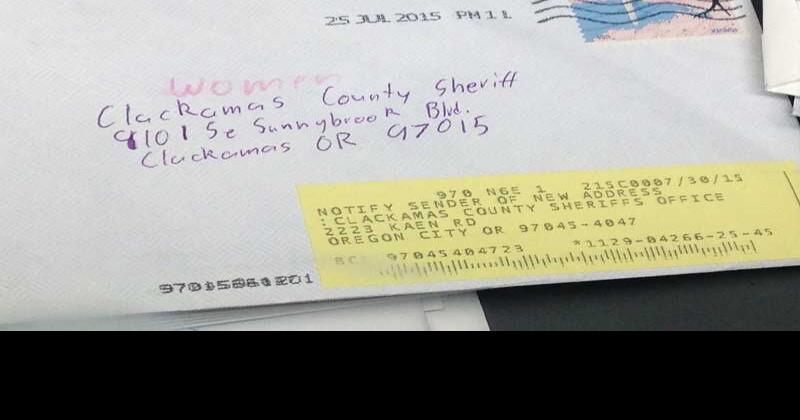 25 JUL 2015 PM 1 L
women
Clackamas County Sheriff
9101 Se Sunnybrook Blvd.
Clackamas OR 97015
970 N6E 1 215C0007/30/15
NOTIFY SENDER OF NEW ADDRESS
:CLACKAMAS COUNTY SHERIFFS OFFICE
2223 KAEN RD
OREGON CITY OR 97045-4047
BC: 97045404723 *1129-04266-25-45